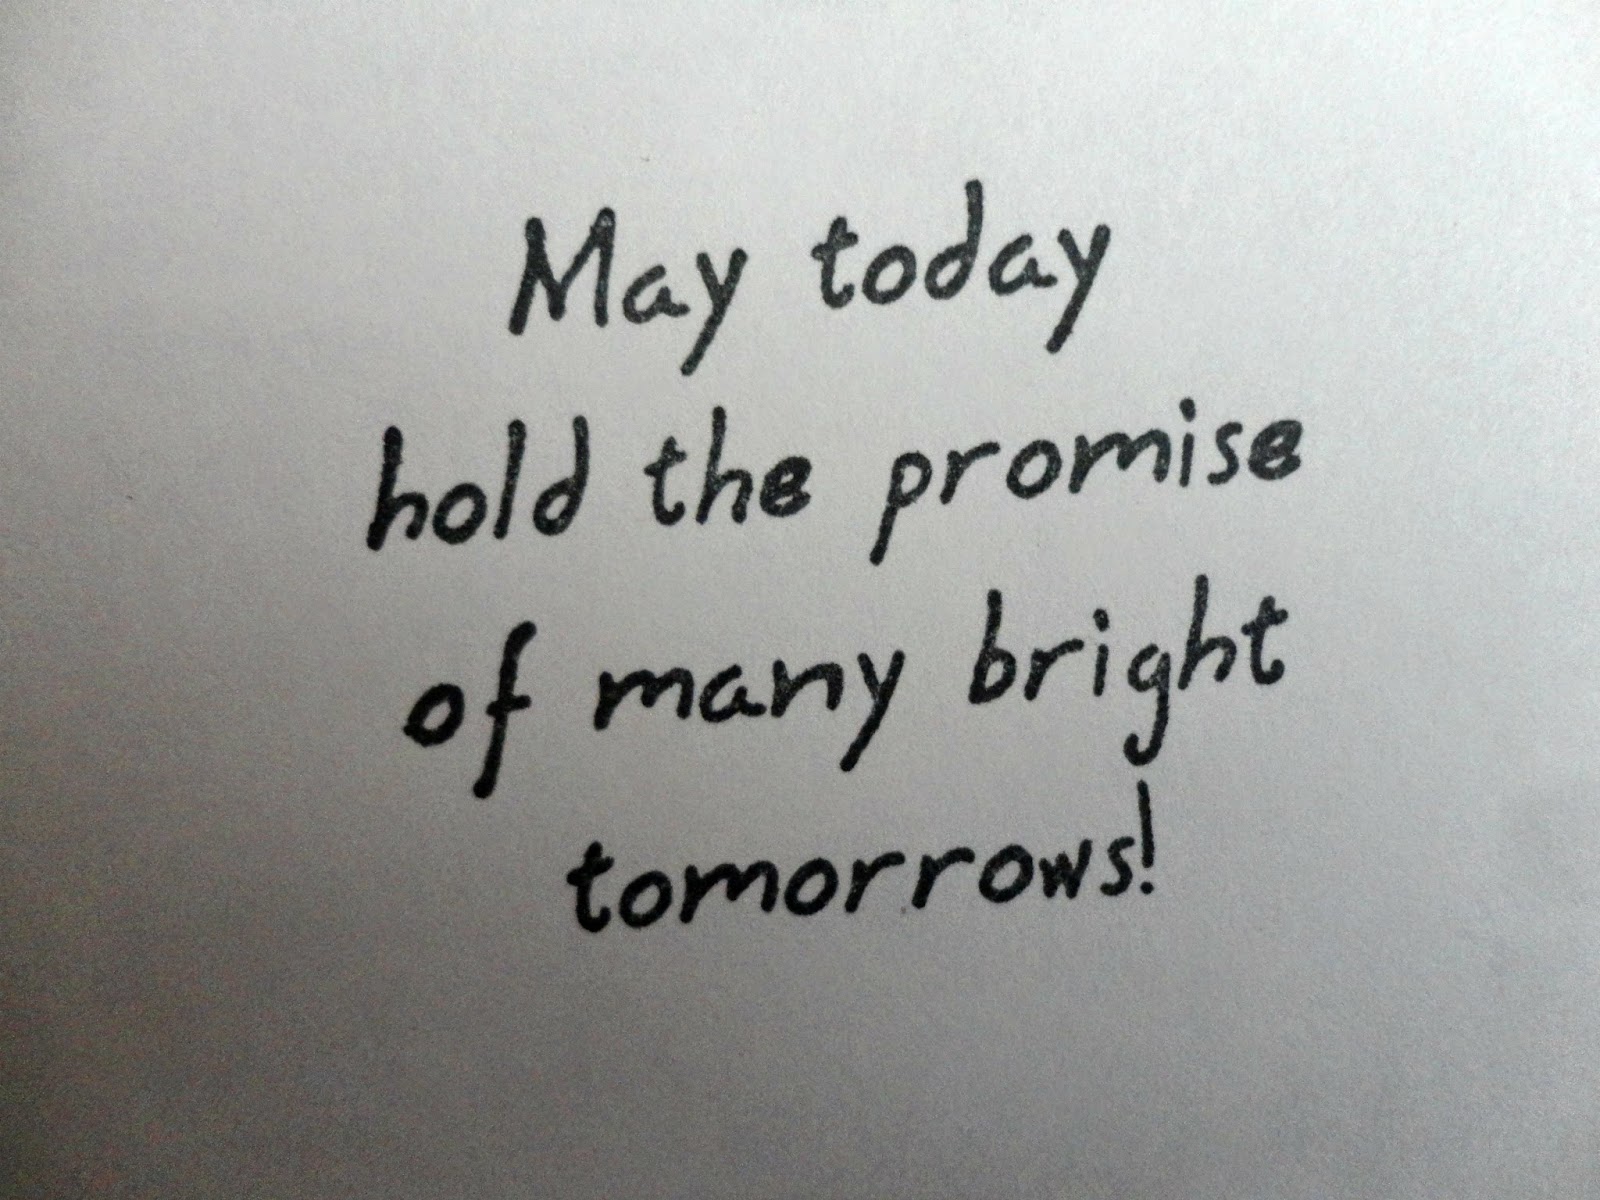 May today
hold the promise
of many bright
tomorrows!